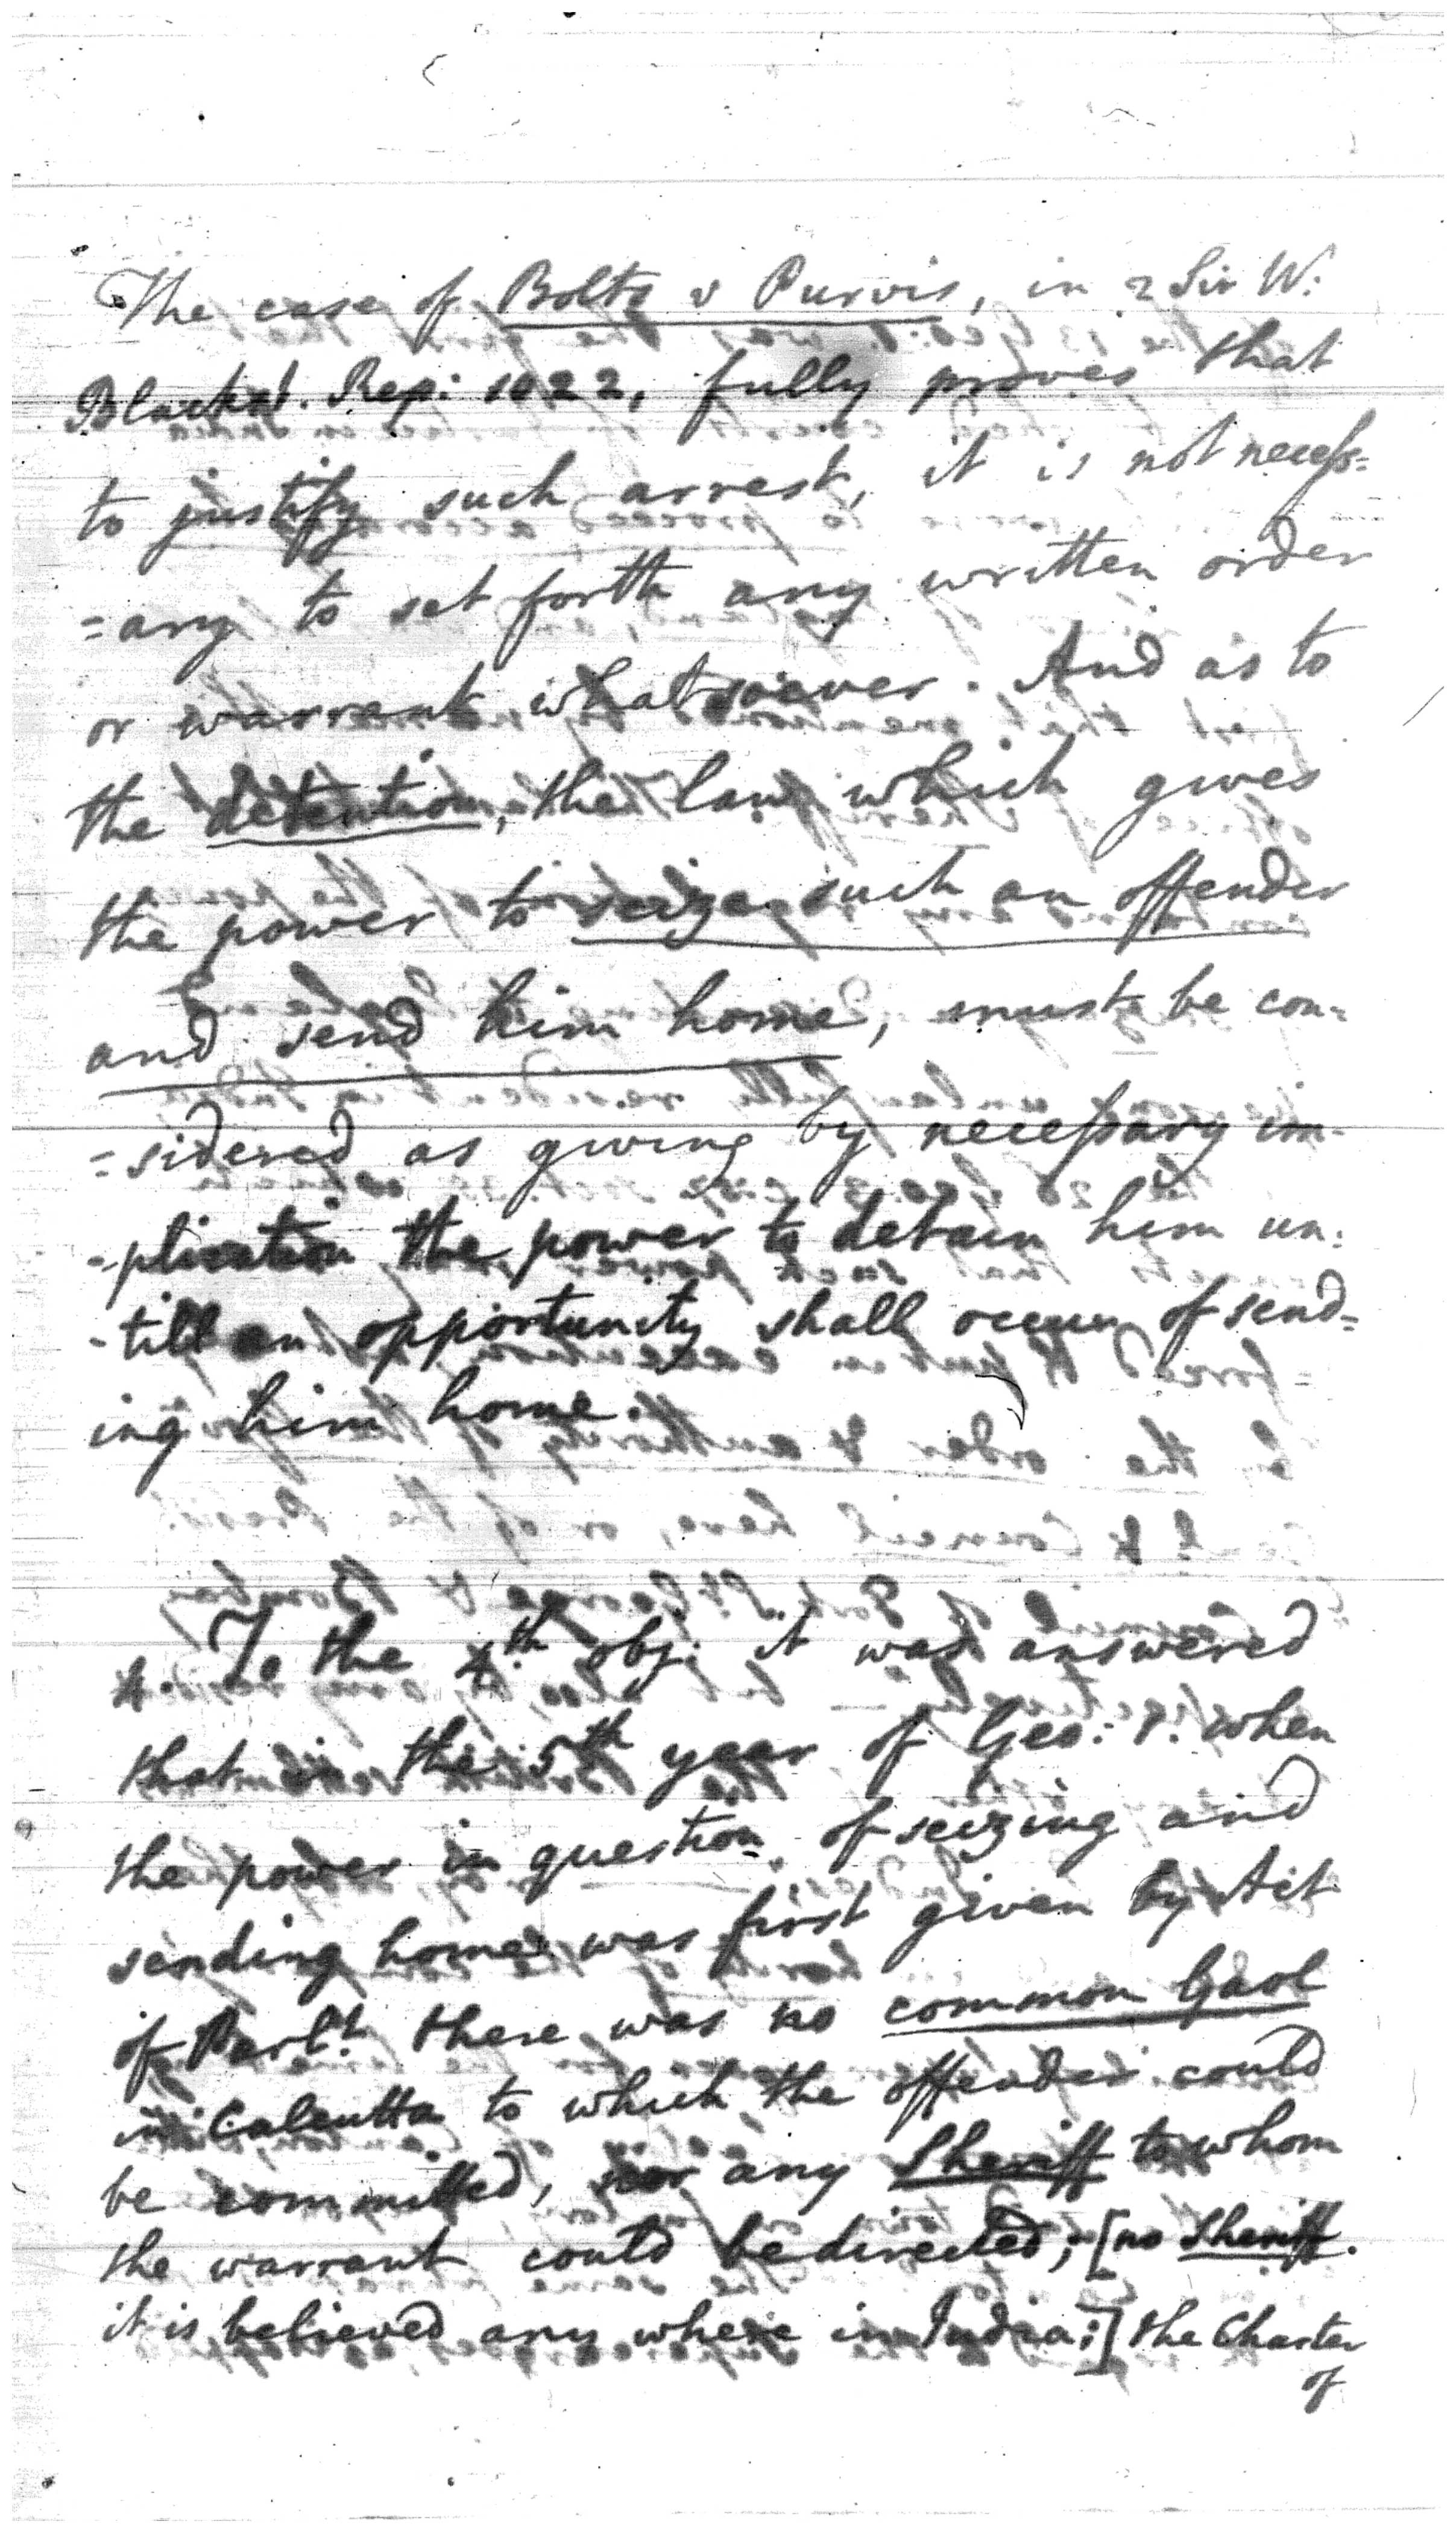 The case of Bolts v Purvis, in 2 Sir W:
Blackst. Rep: 1022, fully proves that
to justify such arrest, it is not necess=
=ary to set forth any written order
or warrant whatsoever. And as to
the detention, the law which gives
the power to seize such an offender
and send him home, must be con=
=sidered as giving by necessary im-
-plication the power to detain him un=
-till an opportunity shall occur of send=
ing him home.
4. To the 4th obj: it was answered
that in the 5th year of Geo: 1. when
the power in question of seizing and
sending home was first given by Act
of Parlt. there was no common Gaol
in Calcutta to which the offender could
be committed, nor any Sheriff to whom
the warrant could be directed; [no Sheriff.
it is believed any where in India;] the Charter
of